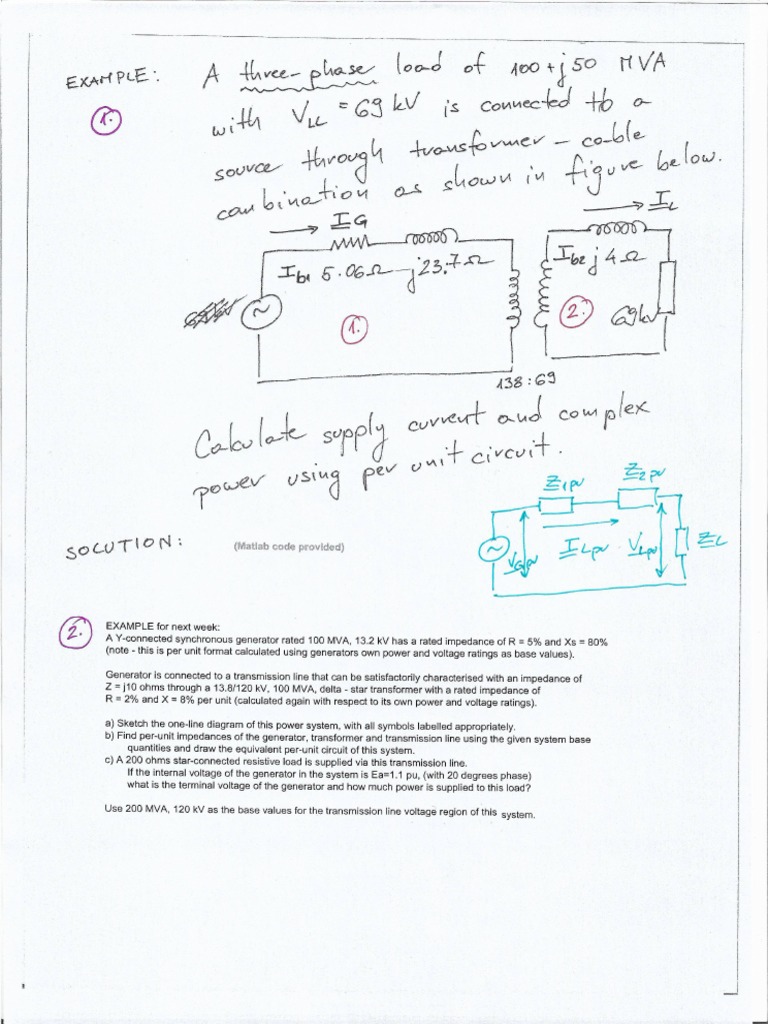 EXAMPLE: A three-phase load of 100+j50 MVA
1. with VLL = 69 kV is connected to a
source through transformer - cable
combination as shown in figure below.
IG
IL
Ib1 5.06Ω j23.7Ω
Ib2 j4Ω
~
1.
2.
69kV
138:69
Calculate supply current and complex
power using per unit circuit.
Z1pu Z2pu
SOLUTION: (Matlab code provided)
~ VGpu ILpu VLpu ZL
2. EXAMPLE for next week:
A Y-connected synchronous generator rated 100 MVA, 13.2 kV has a rated impedance of R = 5% and Xs = 80%
(note - this is per unit format calculated using generators own power and voltage ratings as base values).
Generator is connected to a transmission line that can be satisfactorily characterised with an impedance of
Z = j10 ohms through a 13.8/120 kV, 100 MVA, delta - star transformer with a rated impedance of
R = 2% and X = 8% per unit (calculated again with respect to its own power and voltage ratings).
a) Sketch the one-line diagram of this power system, with all symbols labelled appropriately.
b) Find per-unit impedances of the generator, transformer and transmission line using the given system base
quantities and draw the equivalent per-unit circuit of this system.
c) A 200 ohms star-connected resistive load is supplied via this transmission line.
If the internal voltage of the generator in the system is Ea=1.1 pu, (with 20 degrees phase)
what is the terminal voltage of the generator and how much power is supplied to this load?
Use 200 MVA, 120 kV as the base values for the transmission line voltage region of this system.